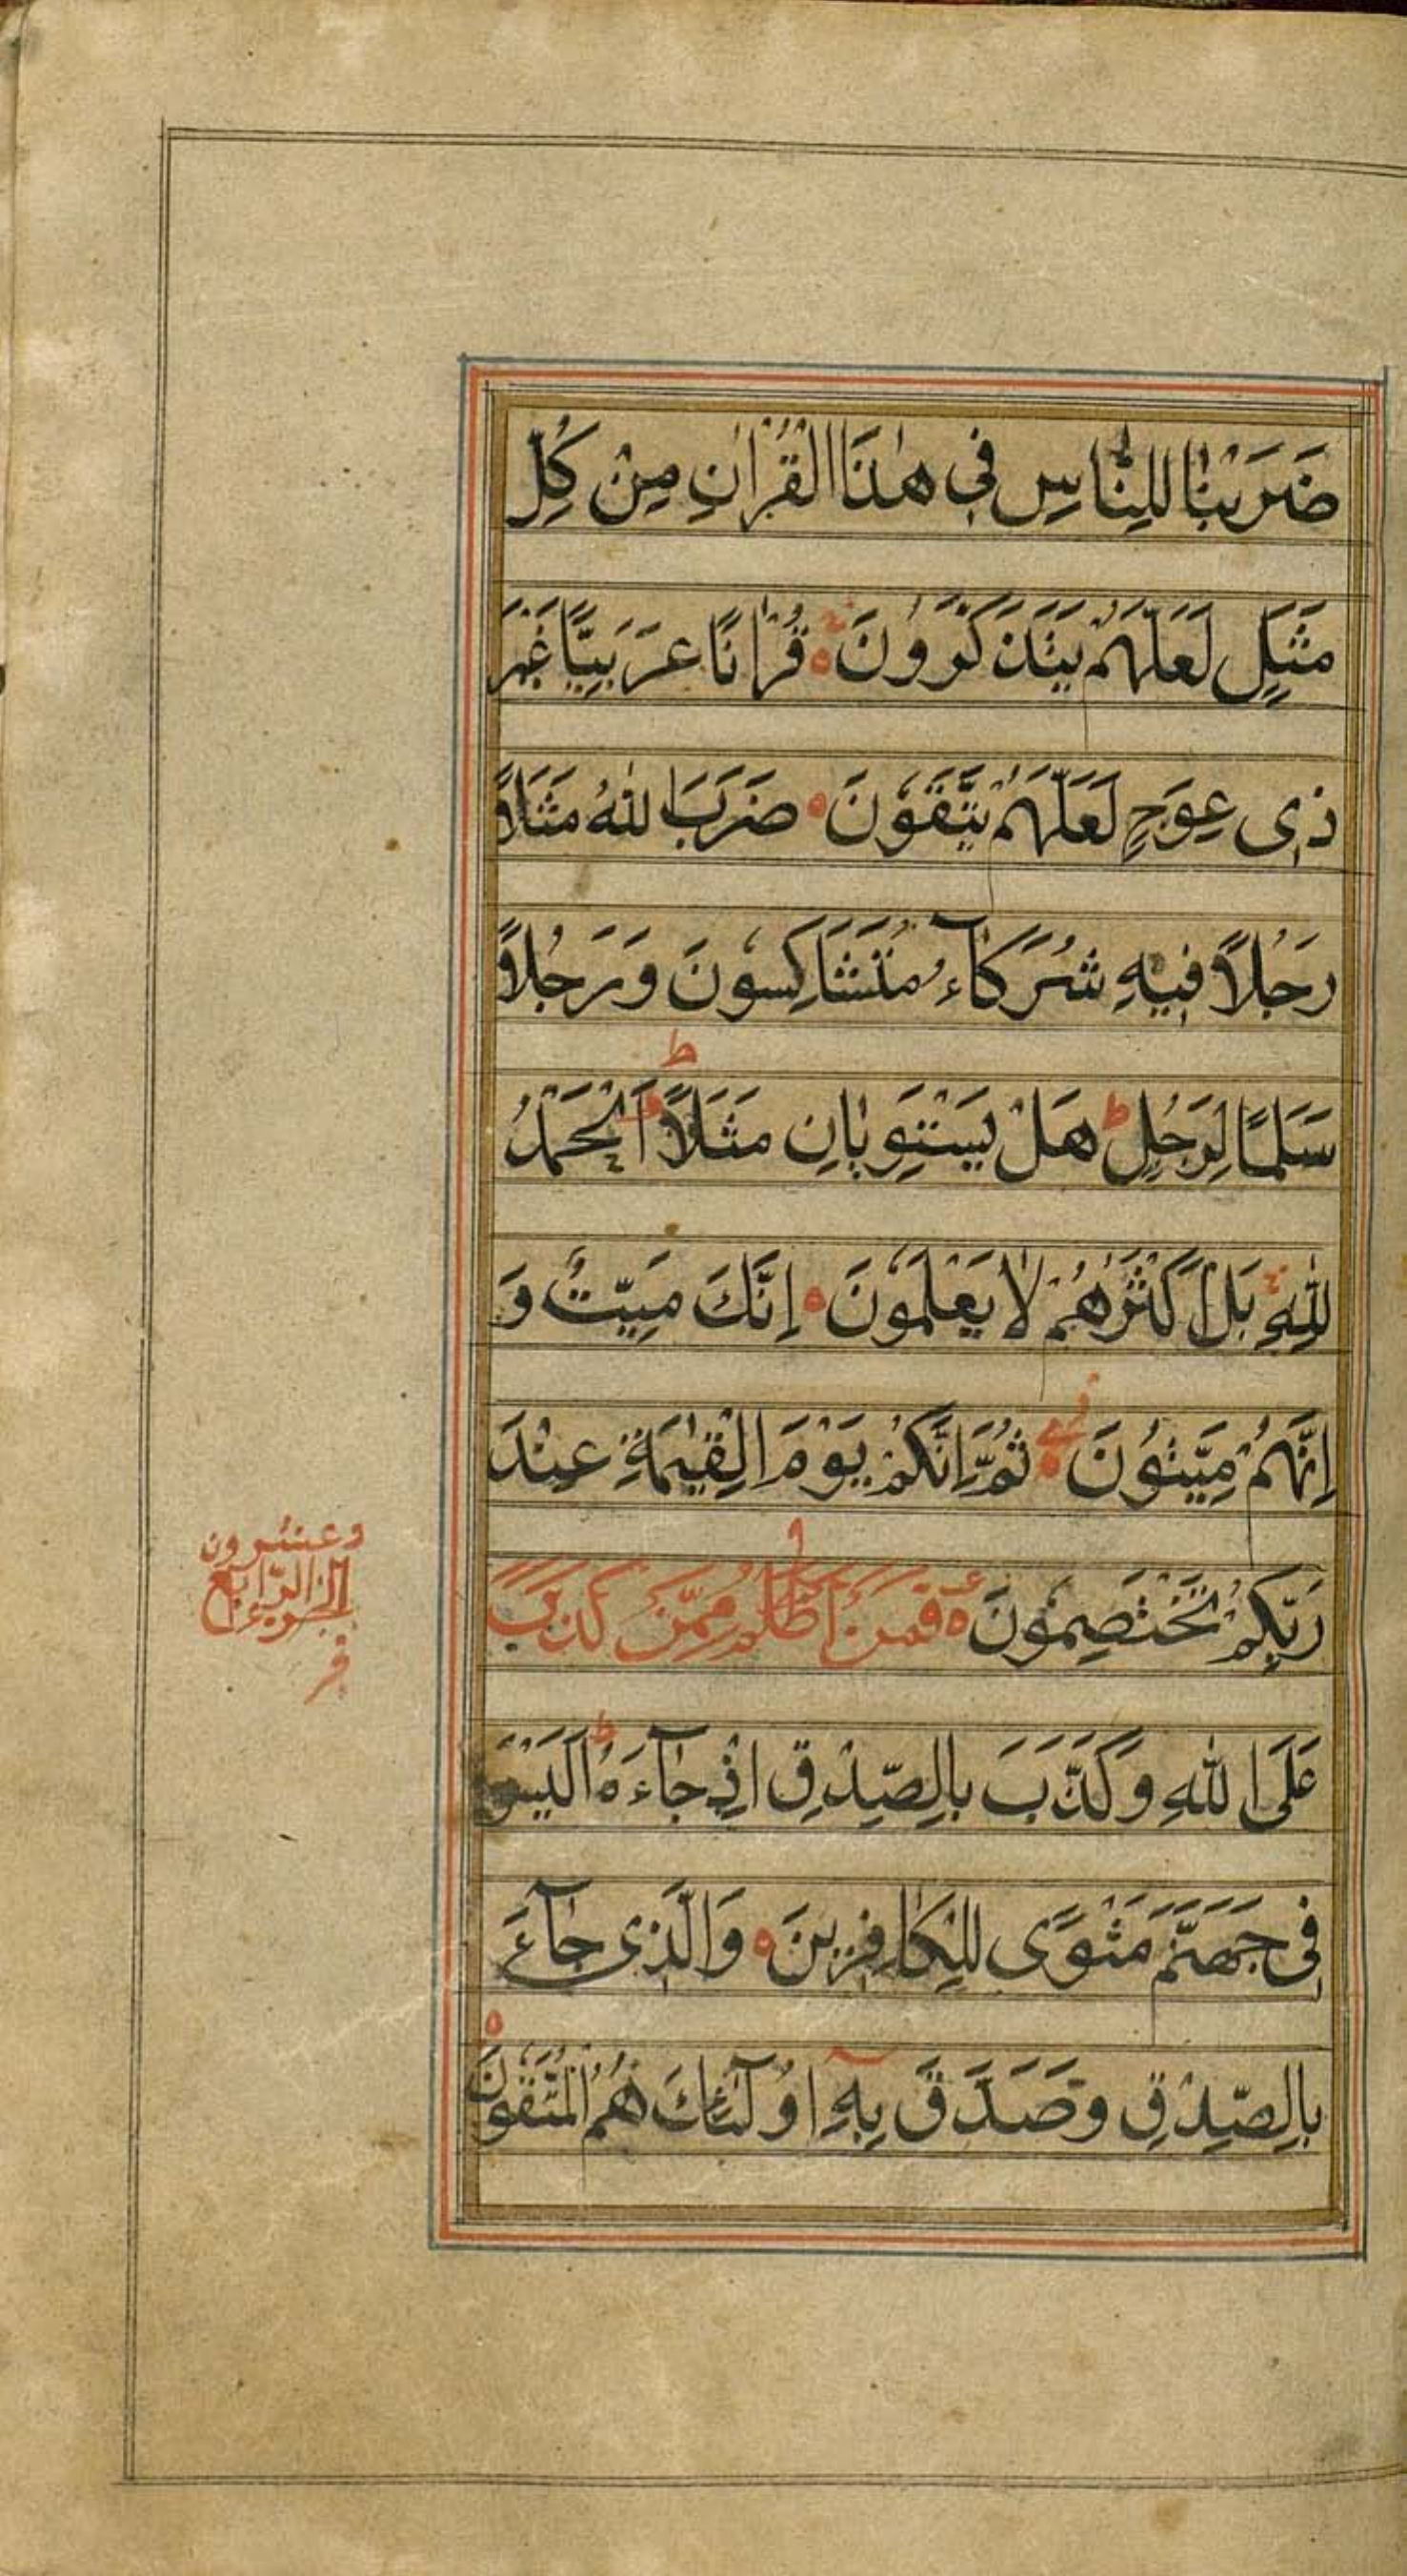 ضَرَبْنَا لِلنَّاسِ فِي هٰذَا الْقُرْاٰنِ مِنْ كُلِّ
مَثَلٍ لَعَلَّهُمْ يَتَذَكَّرُونَ ۝ قُرْاٰنًا عَرَبِيًّا غَيْرَ
ذِي عِوَجٍ لَعَلَّهُمْ يَتَّقُونَ ۝ ضَرَبَ اللّٰهُ مَثَلًا
رَجُلًا فِيهِ شُرَكَآءُ مُتَشَاكِسُونَ وَرَجُلًا
سَلَمًا لِرَجُلٍ ط هَلْ يَسْتَوِيَانِ مَثَلًا ط اَلْحَمْدُ
لِلّٰهِ بَلْ اَكْثَرُهُمْ لَا يَعْلَمُونَ ۝ اِنَّكَ مَيِّتٌ وَ
اِنَّهُمْ مَيِّتُونَ ۝ ثُمَّ اِنَّكُمْ يَوْمَ الْقِيٰمَةِ عِنْدَ
رَبِّكُمْ تَخْتَصِمُونَ ۝ فَمَنْ اَظْلَمُ مِمَّنْ كَذَبَ
الجزو الرّابع
وعشرون
عَلَى اللّٰهِ وَكَذَّبَ بِالصِّدْقِ اِذْ جَآءَهُ ط اَلَيْسَ
فِي جَهَنَّمَ مَثْوًى لِلْكَافِرِينَ ۝ وَالَّذِي جَآءَ
بِالصِّدْقِ وَصَدَّقَ بِهِ اُولٰٓئِكَ هُمُ الْمُتَّقُونَ ۝